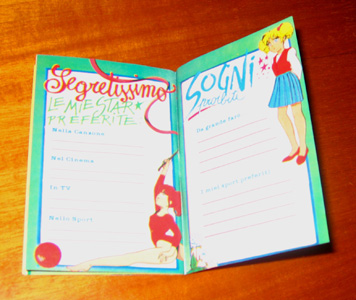 Segretissimo
LE MIE STAR
PREFERITE
Nella Canzone
Nel Cinema
In TV
Nello Sport
SOGNI
proibiti
Da grande farò
I miei sport preferiti